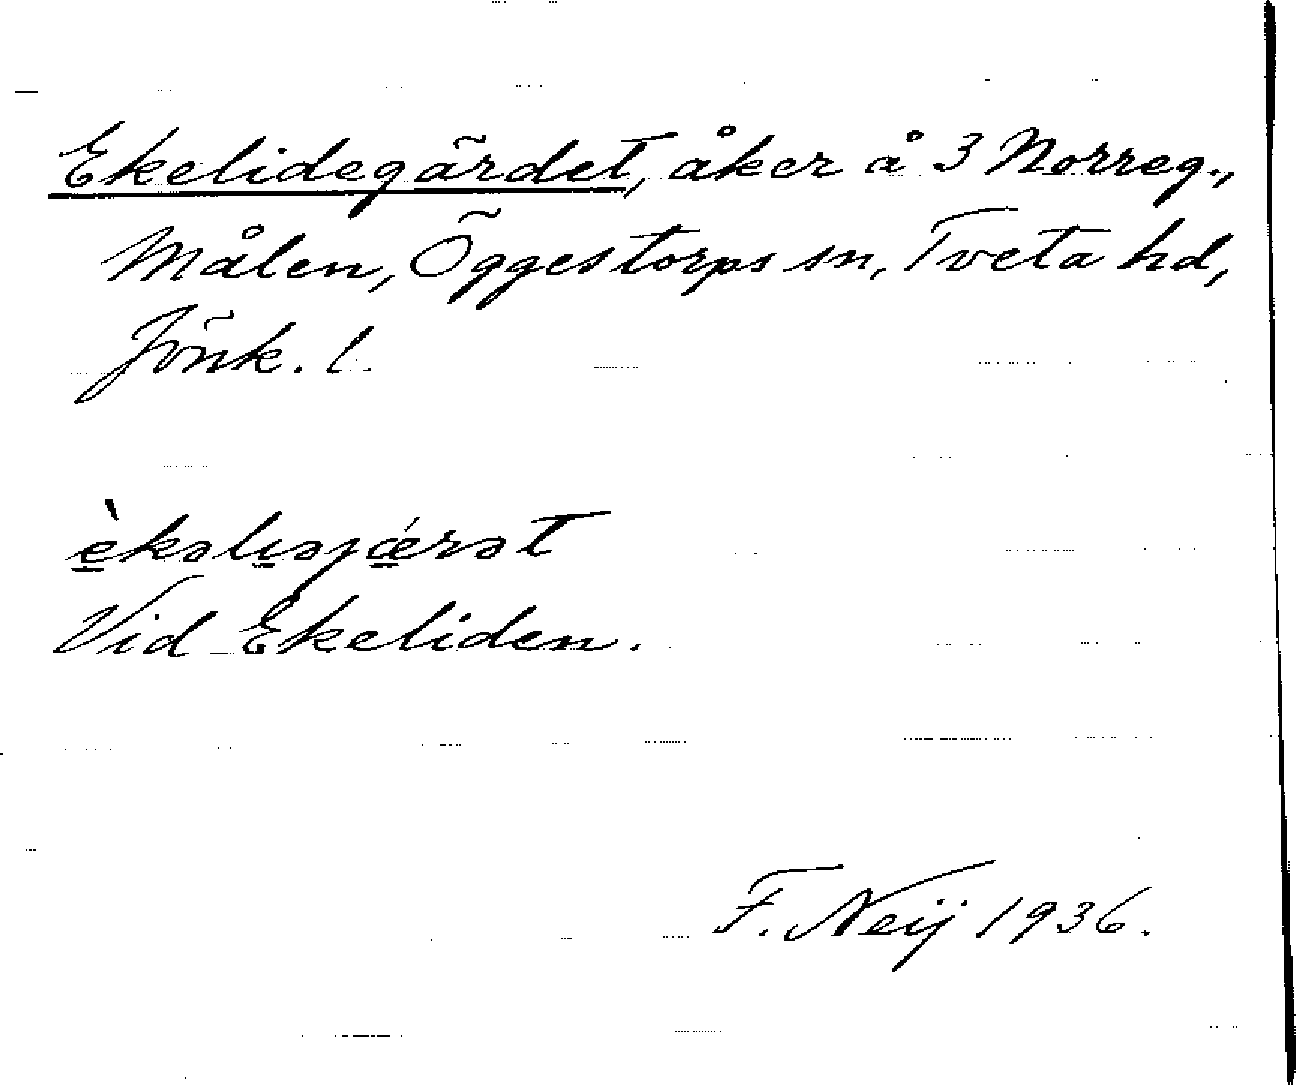 Ekelidegärdet, åker å 3 Norreg.,
Målen, Öggestorps sn, Tveta hd,
Jönk. l.
è̱kəli̱əjǽ̱rət
Vid Ekeliden.
F. Neij 1936.